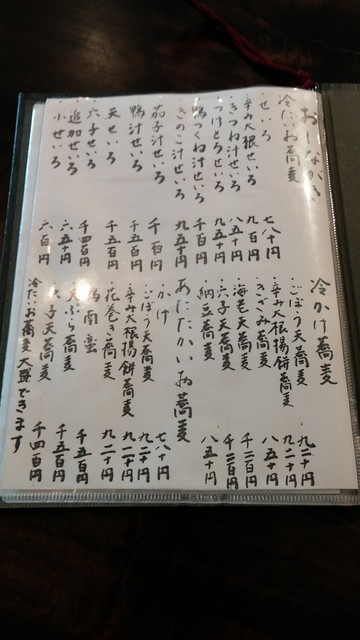 おしながき
冷たいお蕎麦
・せいろ 七八十円
・辛み大根せいろ 九百円
・きつね汁せいろ 八五十円
・つけとろせいろ 九五十円
・鴨つくね汁せいろ 千百円
・きのこ汁せいろ 九五十円
茄子汁せいろ 千百円
鴨汁せいろ 千五百円
天せいろ 千五百円
穴子せいろ 千四百円
・追加せいろ 六五十円
・小せいろ 六百円
冷かけ蕎麦
・ごぼう天蕎麦 九二十円
・辛み大根揚餅蕎麦 九二十円
・きざみ蕎麦 八五十円
海老天蕎麦 千二百円
穴子天蕎麦 千二百円
納豆蕎麦 八五十円
あたたかいお蕎麦
・かけ 七八十円
・ごぼう天蕎麦 九二十円
・辛み大根揚餅蕎麦 九二十円
花巻き蕎麦 九二十円
鴨南蛮 千五百円
天ぷら蕎麦 千五百円
穴子天蕎麦 千四百円
冷たいお蕎麦大盛できます